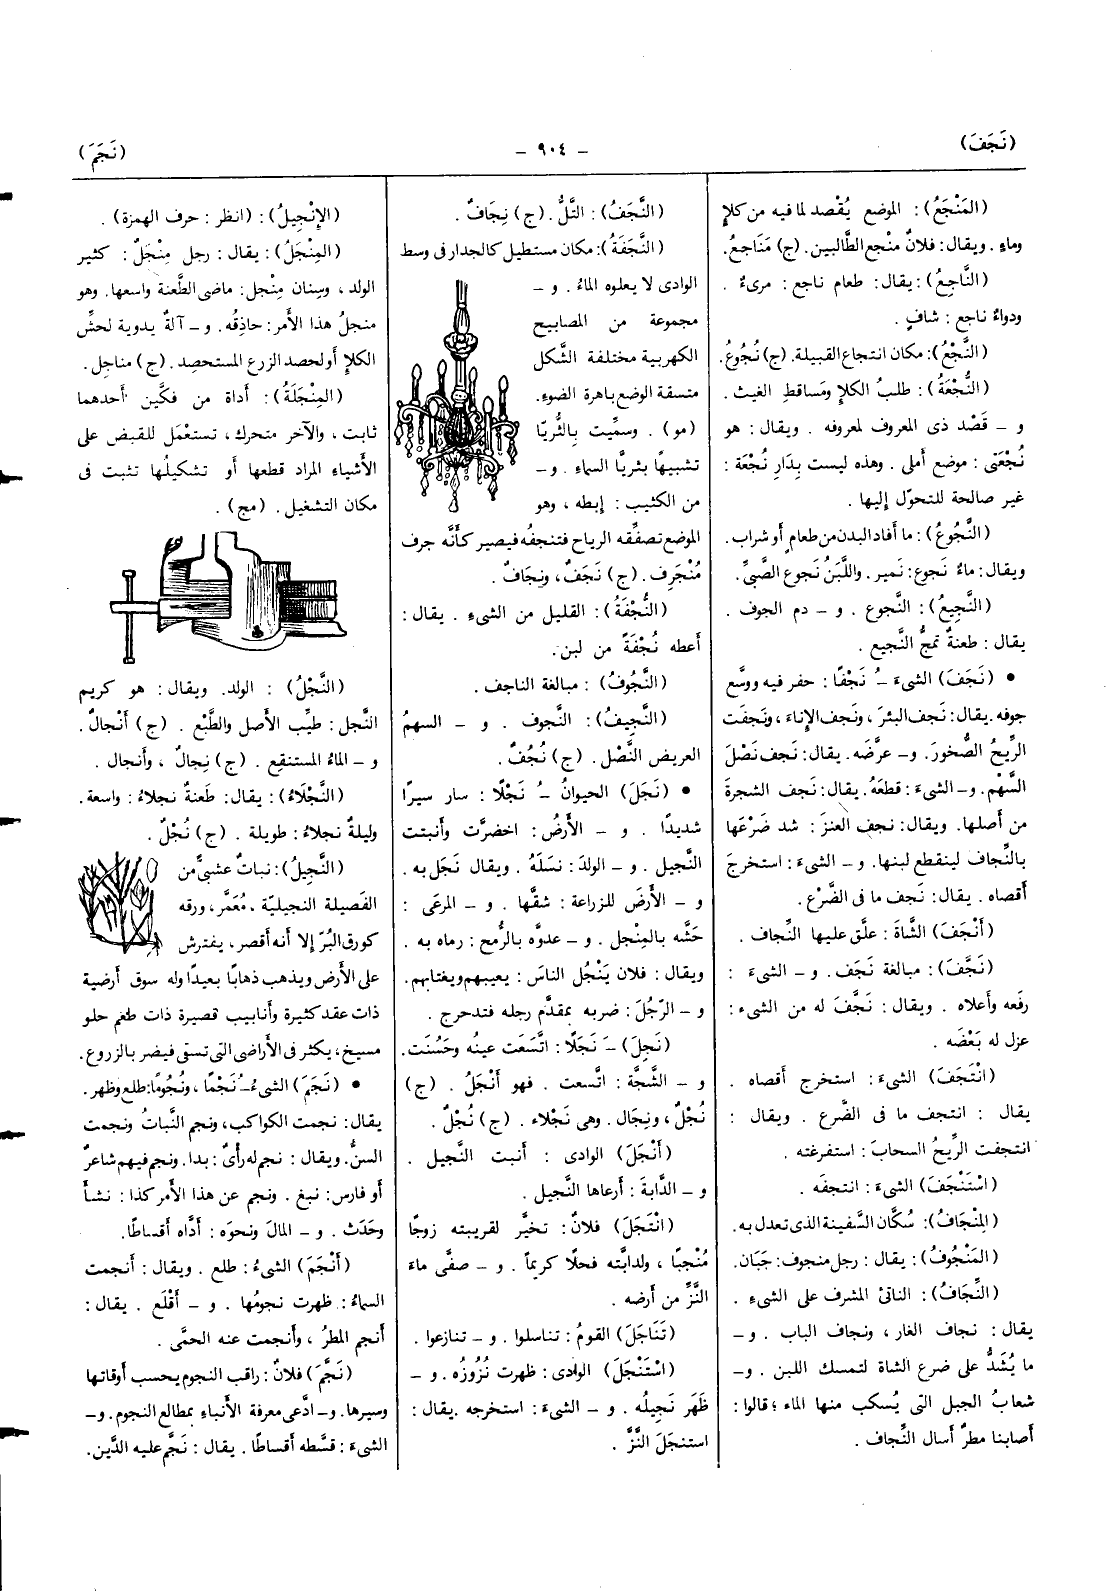 (نَجَفَ)
– ٩٠٤ –
(نَجَمَ)
(المَنْجَعُ): الموضع يُقْصد لما فيه من كلإٍ
وماء . ويقال: فلانٌ منْجع الطَّالبين. (ج) مَنَاجعُ.
(النَّاجِعُ): يقال: طعام ناجع : مرىءٌ .
ودواءٌ ناجع : شافٍ .
(النَّجْعُ): مكان انتجاع القبيلة. (ج) نُجُوعٌ.
(النُّجْعَةُ): طلبُ الكلإ ومَساقطِ الغيث .
و – قَصْد ذى المعروف لمعروفه . ويقال : هو
نُجْعَتى : موضع أملى . وهذه ليست بِدَارِ نُجْعَة :
غير صالحة للتحوّل إليها .
(النَّجُوعُ) : ما أفاد البدن من طعامٍ أو شراب.
ويقال: ماءٌ نَجوع: نَمير. واللَّبَنُ نَجوع الصَّبىِّ.
(النَّجِيعُ): النَّجوع . و – دم الجوف .
يقال : طعنةٌ تمجُّ النَّجيع .
• (نَجَفَ) الشىءَ –ُ نَجْفًا : حفر فيه ووسَّع
جوفه. يقال: نَجف البئرَ ، ونَجف الإِناءَ ، ونَجفَت
الرِّيحُ الصُّخورَ. و– عرَّضَه. يقال: نَجف نَصْلَ
السَّهْم. و– الشىءَ : قطعَهُ. يقال: نَجف الشجرةَ
من أصلها. ويقال: نجف العنزَ : شد ضَرْعَها
بالنِّجاف لينقطع لبنها. و – الشىءَ : استخرجَ
أقصاه . يقال: نَجف ما فى الضَّرْع .
(أَنْجَفَ) الشَّاةَ : علَّق عليها النِّجاف .
(نَجَّفَ): مبالغة نَجَف. و – الشىءَ :
رفَعه وأَعلاه . ويقال: نَجَّفَ له من الشىءِ :
عزل له بَعْضَه .
(انْتَجَفَ) الشىءَ : استخرج أقصاه .
يقال : انتجف ما فى الضَّرع . ويقال :
انتجفت الرِّيحُ السحابَ : استفرغته .
(اسْتَنْجَفَ) الشىءَ : انتجفه .
(المِنْجَافُ): سُكَّان السَّفينة الذى تعدل به.
(المَنْجُوفُ): يقال : رجل منجوف: جَبَان.
(النِّجَافُ): الناتئ المشرف على الشىء .
يقال : نجاف الغار ، ونجاف الباب . و–
ما يُشَدُّ على ضرع الشاة لتمسك اللبن . و–
شعابُ الجبل التى يُسكب منها الماء ؛ قالوا :
أصابنا مطرٌ أسال النِّجاف .
(النَّجَفُ) : التَّلُّ . (ج) نِجَافٌ .
(النَّجَفَةُ): مكان مستطيل كالجدار فى وسط
الوادى لا يعلوه الماءُ . و –
مجموعة من المصابيح
الكهربية مختلفة الشَّكل
متسقة الوضع باهرة الضوءِ.
(مو) . وسمِّيت بِالثُّريَّا
تشبيهًا بثريَّا السماء . و–
من الكثيب : إبطه ، وهو
الموضع تصفِّقه الرياح فتنجفُه فيصير كأنَّه جرف
مُنْجَرِف . (ج) نَجَفٌ ، ونِجافٌ .
(النُّجْفَةُ): القليل من الشىءِ . يقال :
أعطه نُجْفَةً من لبن .
(النَّجُوفُ) : مبالغة الناجف .
(النَّجِيفُ): النَّجوف . و – السهمُ
العريض النَّصْل . (ج) نُجُفٌ .
• (نَجَلَ) الحيوانُ –ُ نَجْلًا : سار سيرًا
شديدًا . و – الأَرضُ : اخضرَّت وأنبتت
النَّجيل . و – الولدَ : نسَلَهُ . ويقال نَجَل به .
و – الأَرضَ للزراعة : شقَّها . و – المرعَى :
حَشَّه بالمِنْجل . و – عدوَّه بالرُّمح : رماه به .
ويقال : فلان يَنْجُل الناسَ : يعيبهم ويغتابهم.
و – الرّجُلَ : ضربه بمقدَّم رجله فتدحرج .
(نَجِلَ) –َ نَجَلًا : اتَّسَعت عينُه وحَسُنَت.
و – الشَّجَّة : اتَّسعت . فهو أنْجَلُ . (ج)
نُجْلٌ ، ونِجَال . وهى نَجْلاء . (ج) نُجْلٌ .
(أَنْجَلَ) الوادى : أنبت النَّجيل .
و – الدَّابةَ : أرعاها النَّجيل .
(انْتَجَلَ) فلانٌ : تخيَّر لقريبته زوجًا
مُنْجبًا ، ولدابَّته فحلًا كريماً . و – صفَّى ماء
النَّزِّ من أرضه .
(تَنَاجَلَ) القومُ : تناسلوا . و – تنازعوا .
(اسْتَنْجَلَ) الوادى : ظهرت نُزُوزُه . و –
ظَهَر نَجِيلُه . و – الشىءَ : استخرجه . يقال :
استنجَلَ النَّزَّ .
(الإِنْجِيلُ) : (انظر : حرف الهمزة) .
(المِنْجَلُ): يقال : رجل مِنْجَلٌ : كثير
الولد ، وسِنان مِنْجل : ماضى الطَّعنة واسعها. وهو
منجلُ هذا الأَمر : حاذِقُه . و– آلةٌ يدوية لحشِّ
الكلإ أو لحصد الزرع المستحصد . (ج) مناجل .
(المِنْجَلَةُ) : أداة من فكَّين أحدهما
ثابت ، والآخر متحرك ، تستعْمَل للقبض على
الأَشياءِ المراد قطعها أو تشكيلُها تثبت فى
مكان التشغيل . (مج) .
(النَّجْلُ) : الولد. ويقال : هو كريم
النَّجل : طيِّب الأَصل والطَّبْع . (ج) أنْجالٌ .
و – الماءُ المستنقع . (ج) نِجالٌ ، وأنجال .
(النَّجْلَاءُ): يقال: طَعنةٌ نجلاءُ : واسعة.
وليلةٌ نجلاءُ : طويلة . (ج) نُجْلٌ .
(النَّجِيلُ): نباتٌ عشبىٌّ من
الفَصيلة النجيليّة ، مُعَمَّر ، ورقه
كورق البُرّ إلا أنه أقصر ، يفترش
على الأَرض ويذهب ذهابًا بعيدًا وله سوق أرضية
ذات عقد كثيرة وأنابيب قصيرة ذات طعم حلو
مسيخ، يكثر فى الأَراضى التى تسقى فيضر بالزروع.
• (نَجَمَ) الشىءُ –ُ نَجْمًا ، ونُجُومًا: طلع وظهر.
يقال: نجمت الكواكب، ونجم النَّباتُ ونجمت
السنُّ. ويقال : نجم له رأىٌ : بدا. ونجم فيهم شاعرٌ
أو فارس: نبغ . ونجم عن هذا الأَمر كذا : نشأ
وحَدَث . و – المالَ ونحوَه : أدَّاه أقساطًا.
(أَنْجَمَ) الشىءُ : طلع . ويقال : أنجمت
السماءُ : ظهرت نجومُها . و – أقْلَع . يقال :
أنجم المطرُ ، وأنجمت عنه الحمَّى .
(نَجَّمَ) فلانٌ : راقب النجوم يحسب أوقاتها
وسيرها. و– ادَّعى معرفة الأَنباءِ بمطالع النجوم. و–
الشىءَ : قسَّطه أقساطًا . يقال : نَجَّم عليه الدَّين.